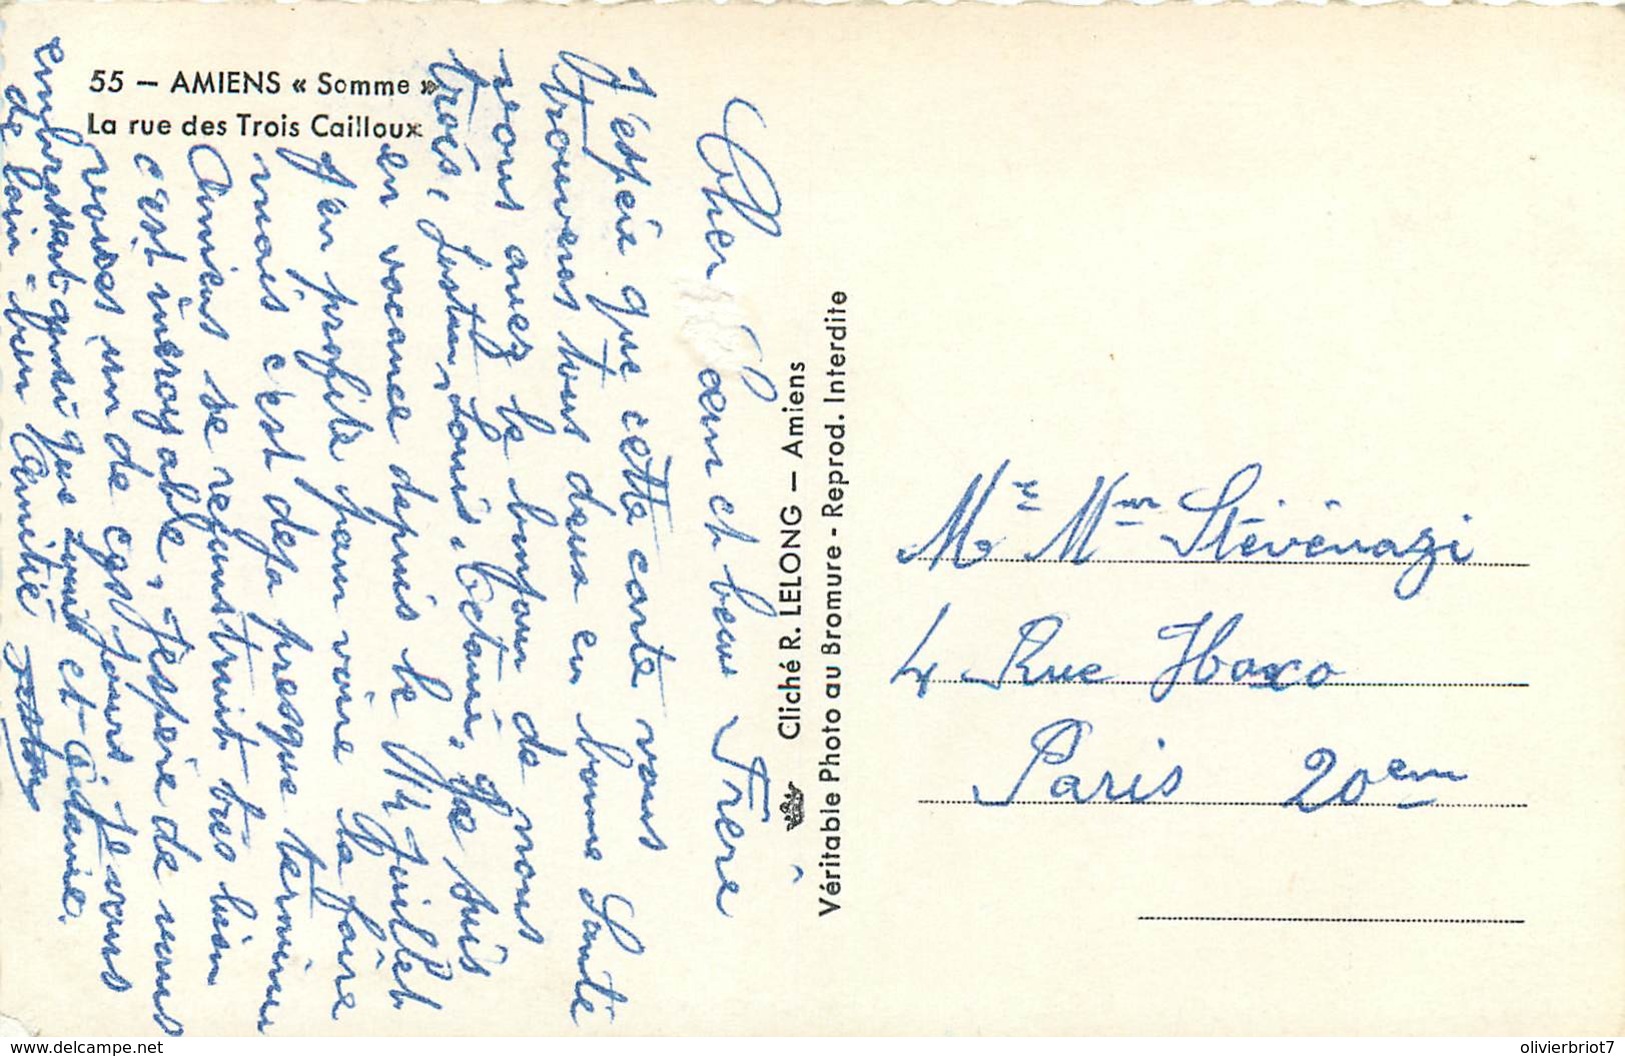 55 — AMIENS « Somme »
La rue des Trois Cailloux
Cher et beau Frère
J'espère que cette carte vous
trouveras tous deux en bonne Santé
vous avez le bonjour de nous
trois, Louis, Octavie, Je suis
en vacance depuis le 14 juillet
J'en profite pour voire la foire
mais c'est deja presque terminer
Amiens se reconstruit tres bien
c'est incroyable, J'espère de vous
revoir un de ces jours Je vous
embrassant ainsi que Louis et Octavie.
de loin - bien Amitié
Cliché R. LELONG — Amiens
Véritable Photo au Bromure - Reprod. Interdite
Mr Mme Stévénazi
4 Rue Haxo
Paris 20em
www.delcampe.net
olivierbriot7